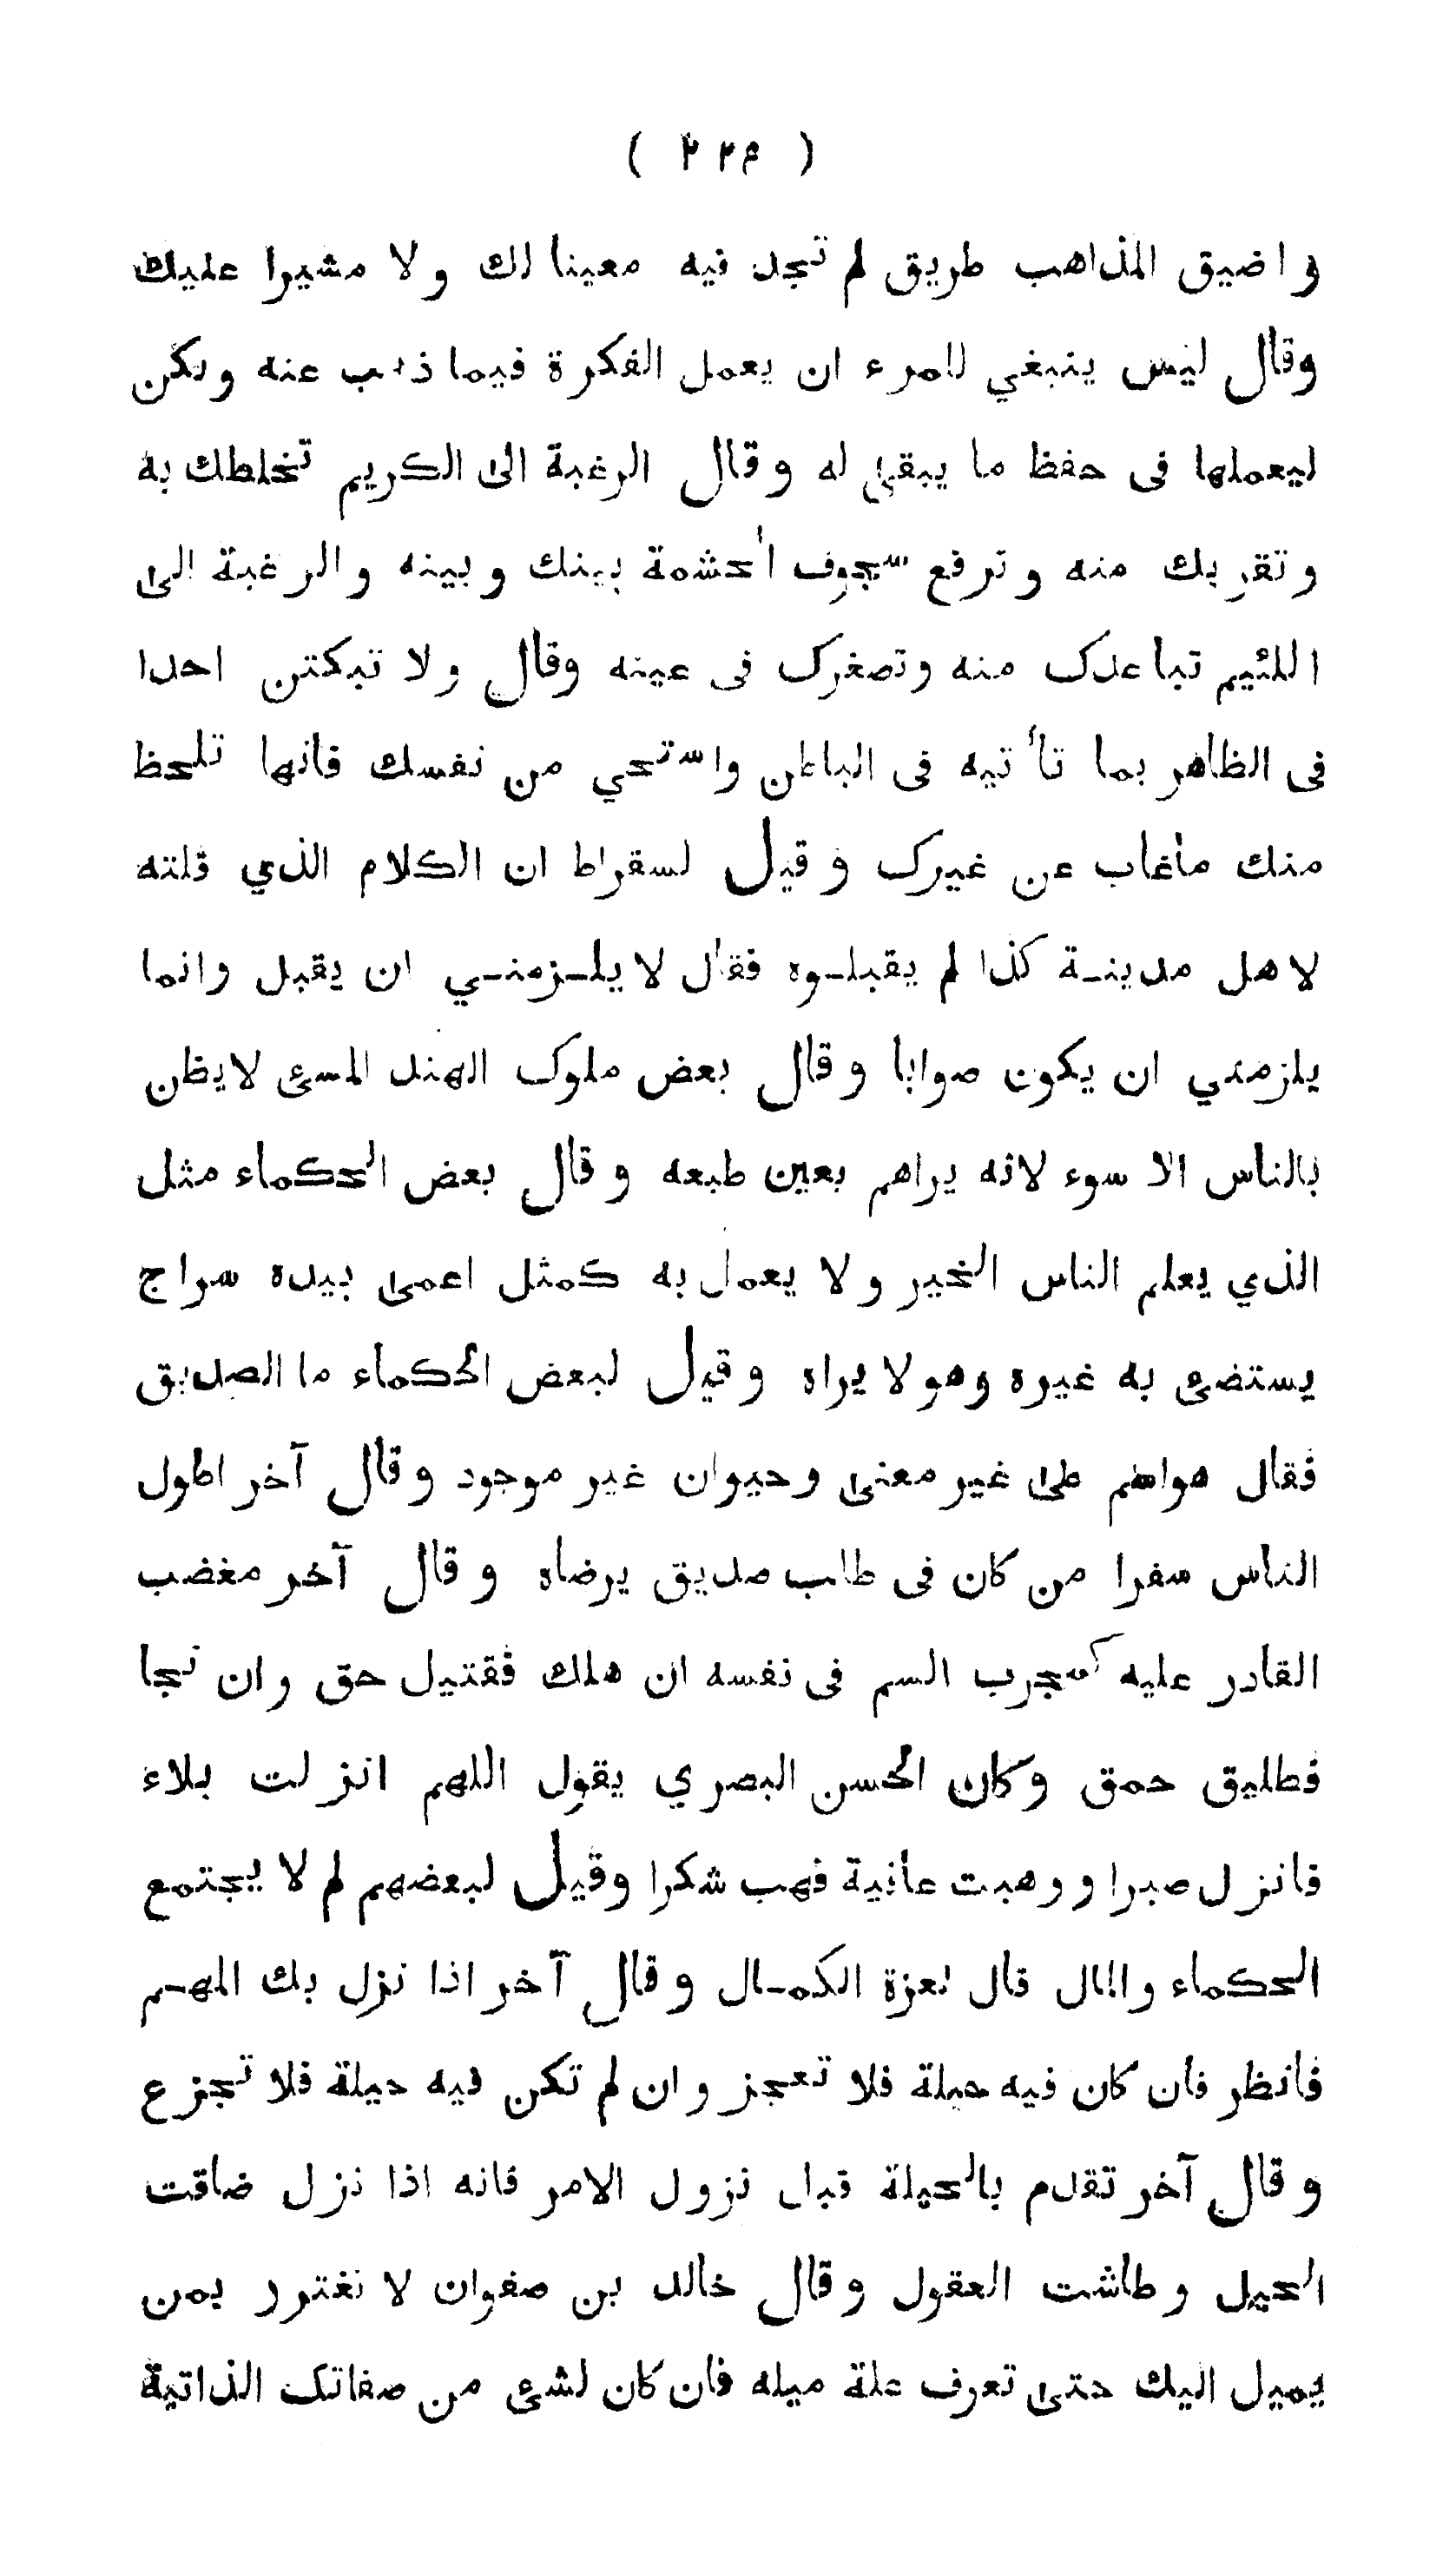 ( ٢٢٩ )
واضيق المذاهب طريق لم تجد فيه معينا لك ولا مشيرا عليك
وقال ليس ينبغي للمرء ان يعمل الفكرة فيما ذهب عنه ولكن
ليعملها فى حفظ ما يبقىٰ له وقال الرغبة الىٰ الكريم تخلطك به
وتقربك منه وترفع سجوف الحشمة بينك وبينه والرغبة الىٰ
اللئيم تباعدك منه وتصغرك فى عينه وقال ولا تبكتن احدا
فى الظاهر بما تأتيه فى الباطن واستحي من نفسك فانها تلحظ
منك ماغاب عن غيرك وقيل لسقراط ان الكلام الذي قلته
لاهل مدينة كذا لم يقبلوه فقال لا يلزمني ان يقبل وانما
يلزمني ان يكون صوابا وقال بعض ملوك الهند المسئ لايظن
بالناس الا سوء لانه يراهم بعين طبعه وقال بعض الحكماء مثل
الذي يعلم الناس الخير ولا يعمل به كمثل اعمىٰ بيده سراج
يستضئ به غيره وهو لا يراه وقيل لبعض الحكماء ما الصديق
فقال هواهم علىٰ غير معنىٰ وحيوان غير موجود وقال آخر اطول
الناس سفرا من كان فى طلب صديق يرضاه وقال آخر مغضب
القادر عليه كمجرب السم فى نفسه ان هلك فقتيل حق وان نجا
فطليق حمق وكان الحسن البصري يقول اللهم انزلت بلاء
فانزل صبرا ووهبت عافية فهب شكرا وقيل لبعضهم لم لا يجتمع
الحكماء والمال قال لعزة الكمال وقال آخر اذا نزل بك المهم
فانظر فان كان فيه حيلة فلا تعجز وان لم تكن فيه حيلة فلا تجزع
وقال آخر تقدم بالحيلة قبل نزول الامر فانه اذا نزل ضاقت
الحيل وطاشت العقول وقال خالد بن صفوان لا تغترر بمن
يميل اليك حتىٰ تعرف علة ميله فان كان لشئ من صفاتك الذاتية